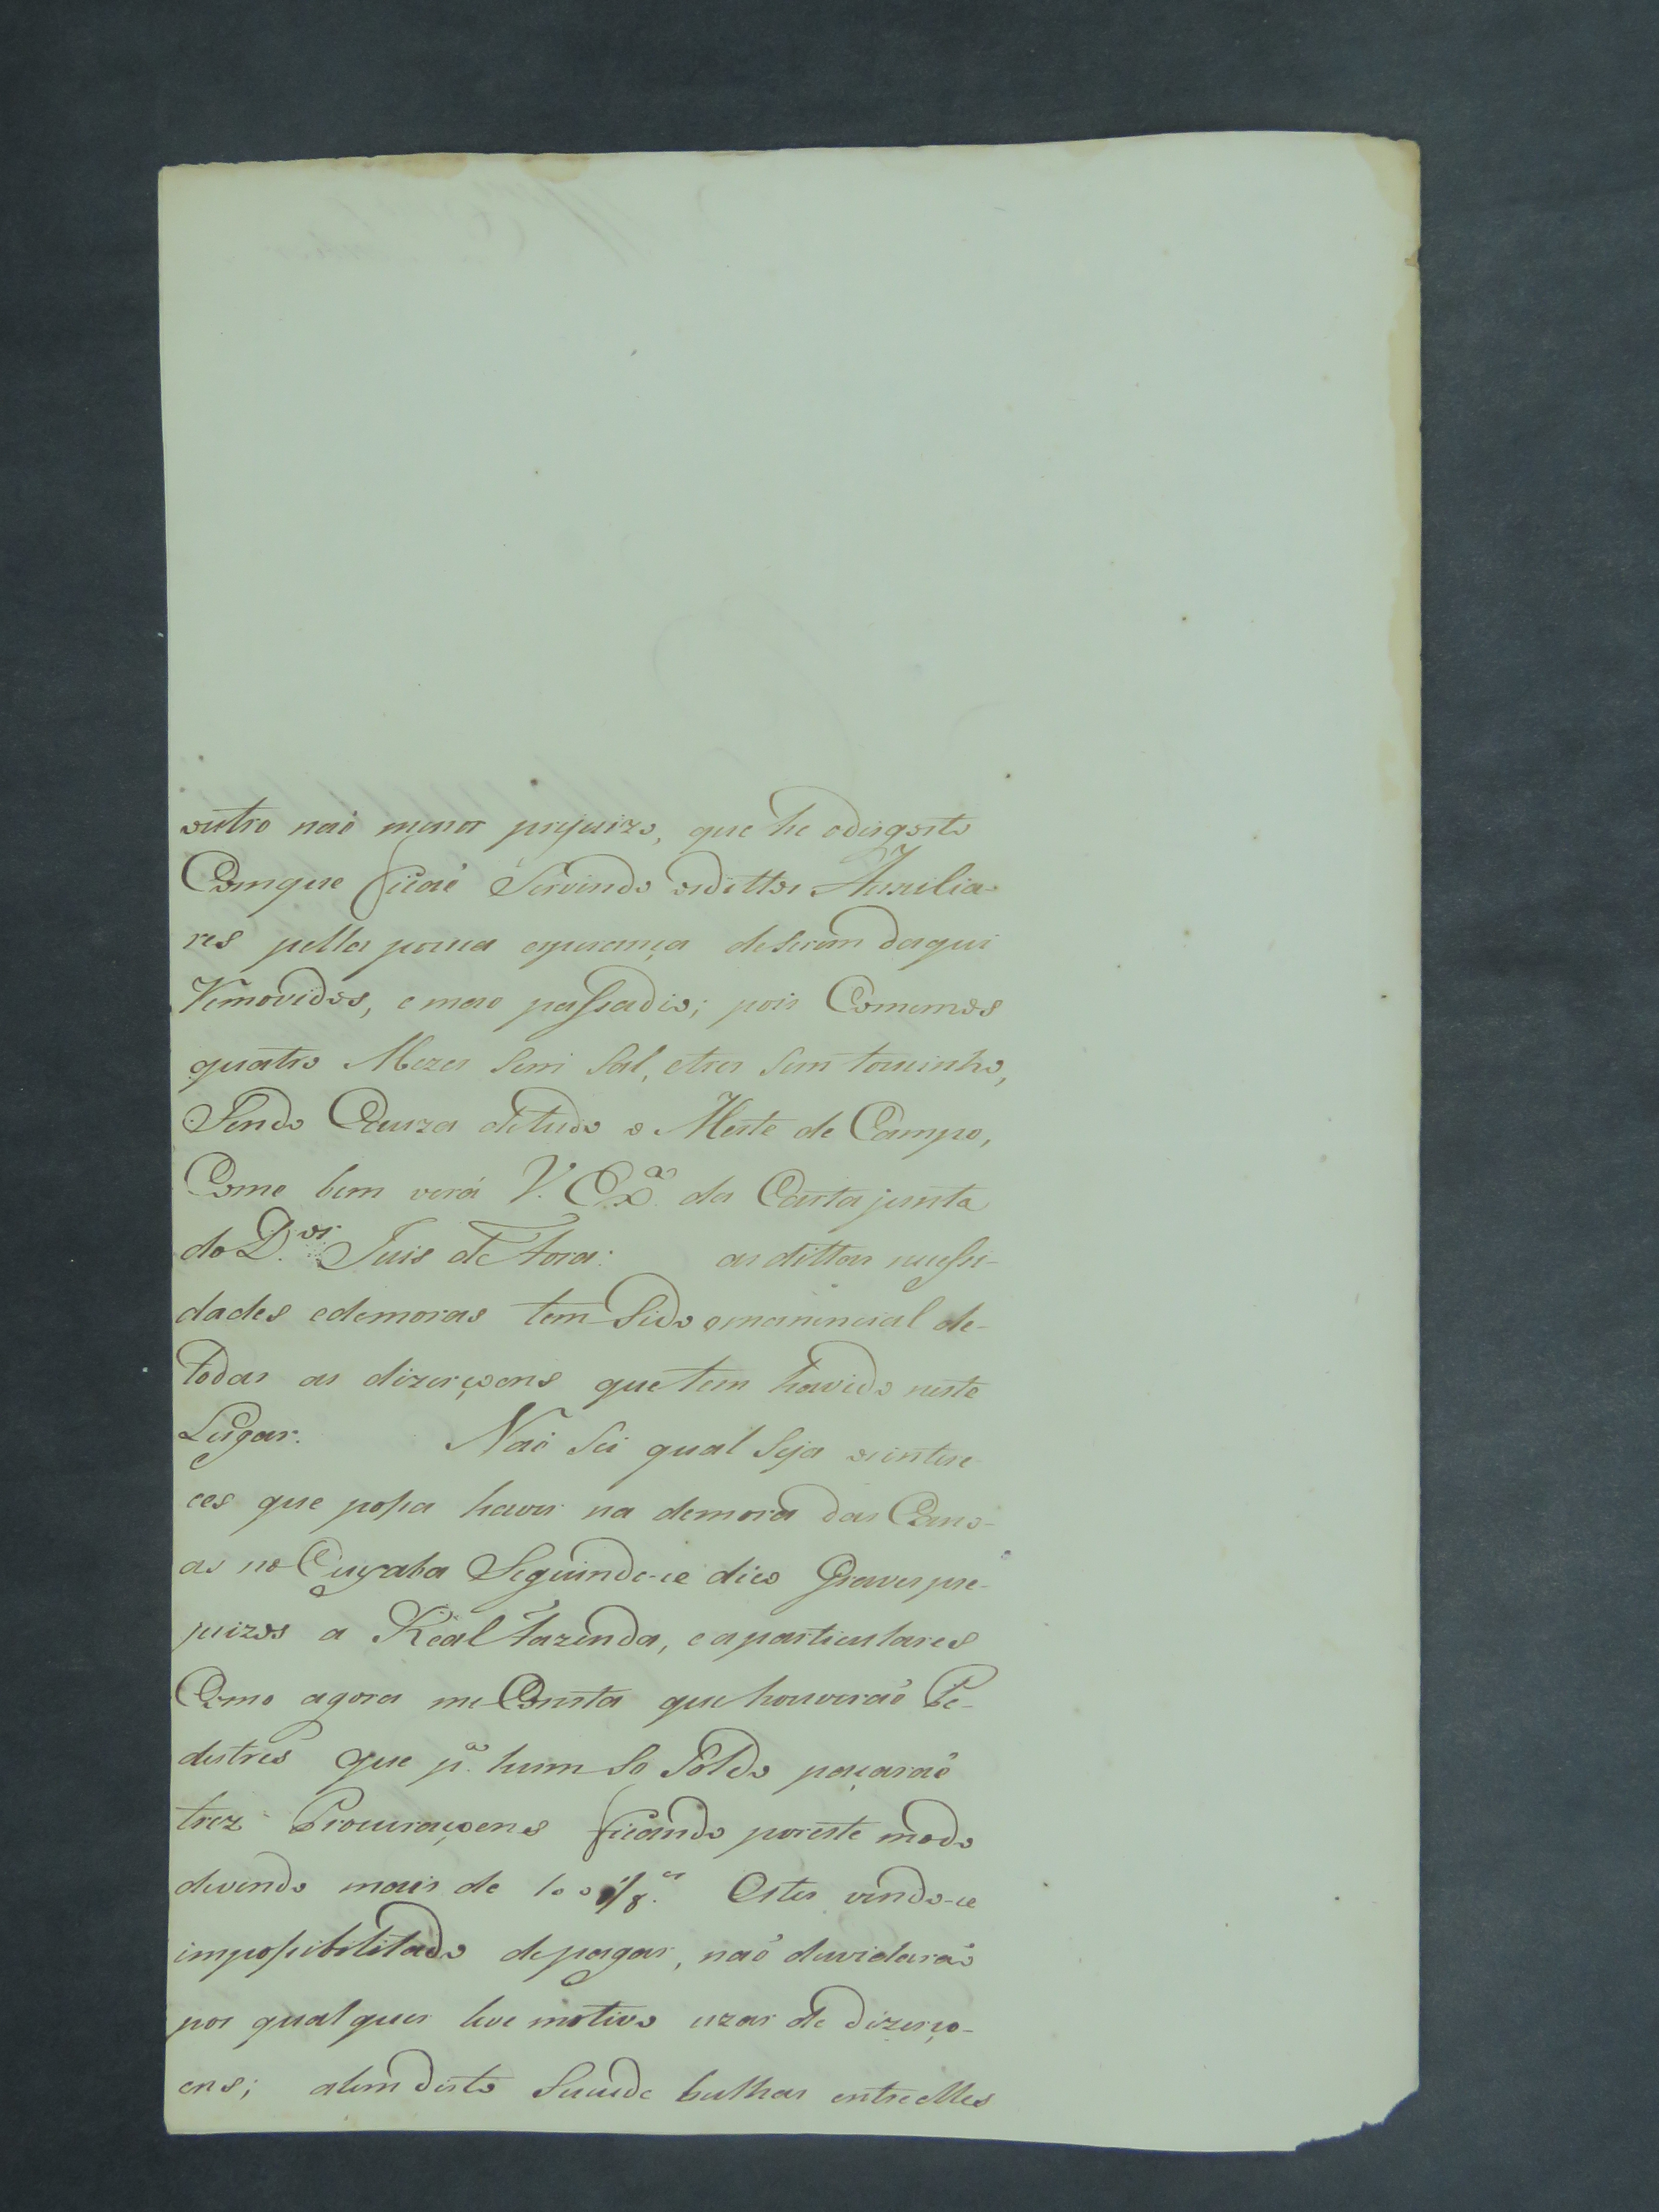 outro naõ menor prejuizo, que he odisgosto
Comque ficaõ Servindo osdittos Auxilia-
res pella pouca esperança deserem daqui
Removidos, e mao passadio; pois Comemos
quatro Mezes Sem Sal, etres Sem toucinho,
Sendo Cauza detudo o Meste de Campo,
Como bem verá V. Exª. da Carta junta
do D.or Juis de Fora: as dittas necessi-
dades edemoras tem Sido omanancial de-
todas as dizerçoens que tem havido neste
Lugar. Naõ Sei qual Seja ointere-
ces que possa haver na demora das Cano-
as no Cuyaba Seguindo-ce dico Graves pre-
juizos a Real Fazenda, e aparticulares
Como agora me Consta que houveraõ Pe-
destres que pª. hum So Soldo paçaraõ
trez Procuraçoens ficando poreste modo
devendo mais de 100/8.as Estes vendo-ce
impossibilitado depagar, naõ duvidaraõ
por qualquer leve motivo uzar de dizerço-
ens; alem disto Sucede bulhas entreelles